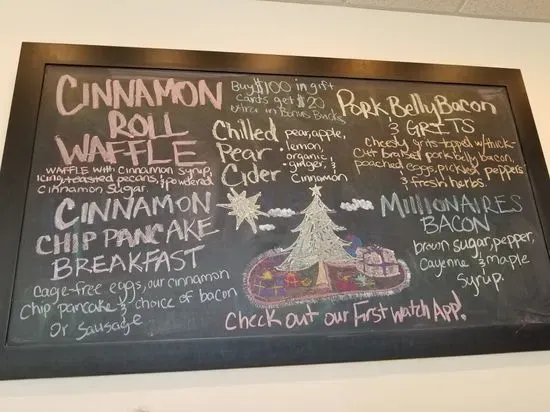 CINNAMON
ROLL
WAFFLE
WAFFLE with Cinnamon Syrup,
Icing, toasted pecans, & powdered
Cinnamon Sugar.
CINNAMON
CHIP PANCAKE
BREAKFAST
cage-free eggs, our cinnamon
chip pancake & choice of bacon
or sausage
Buy $100 in gift
cards get $20
extra in Bonus Bucks
Chilled
Pear
Cider
pear, apple,
lemon,
organic
ginger, &
Cinnamon
Pork Belly Bacon
& GRITS
Cheesy grits topped w/thick-
cut braised pork belly, bacon,
poached eggs, pickled peppers
& fresh herbs.
MILLIONAIRES
BACON
brown sugar, pepper,
Cayenne & maple
Syrup.
Check out our First Watch App!